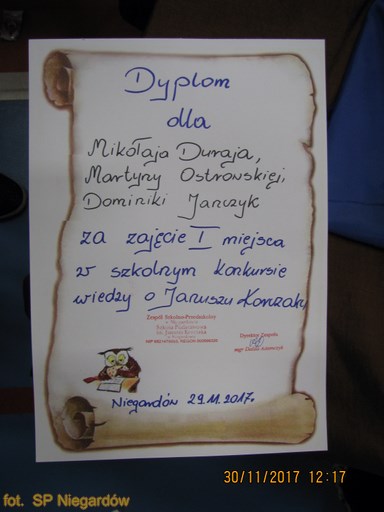 Dyplom
dla
Mikołaja Duraja,
Martyny Ostrowskiej,
Dominiki Janczyk
za zajęcie I miejsca
w szkolnym konkursie
wiedzy o Januszu Korczaku
Zespół Szkolno-Przedszkolny
w Niegardowie
Szkoła Podstawowa
Dyrektor Zespołu
Niegardów 29.11.2017r.
30/11/2017 12:17
fot. SP Niegardów